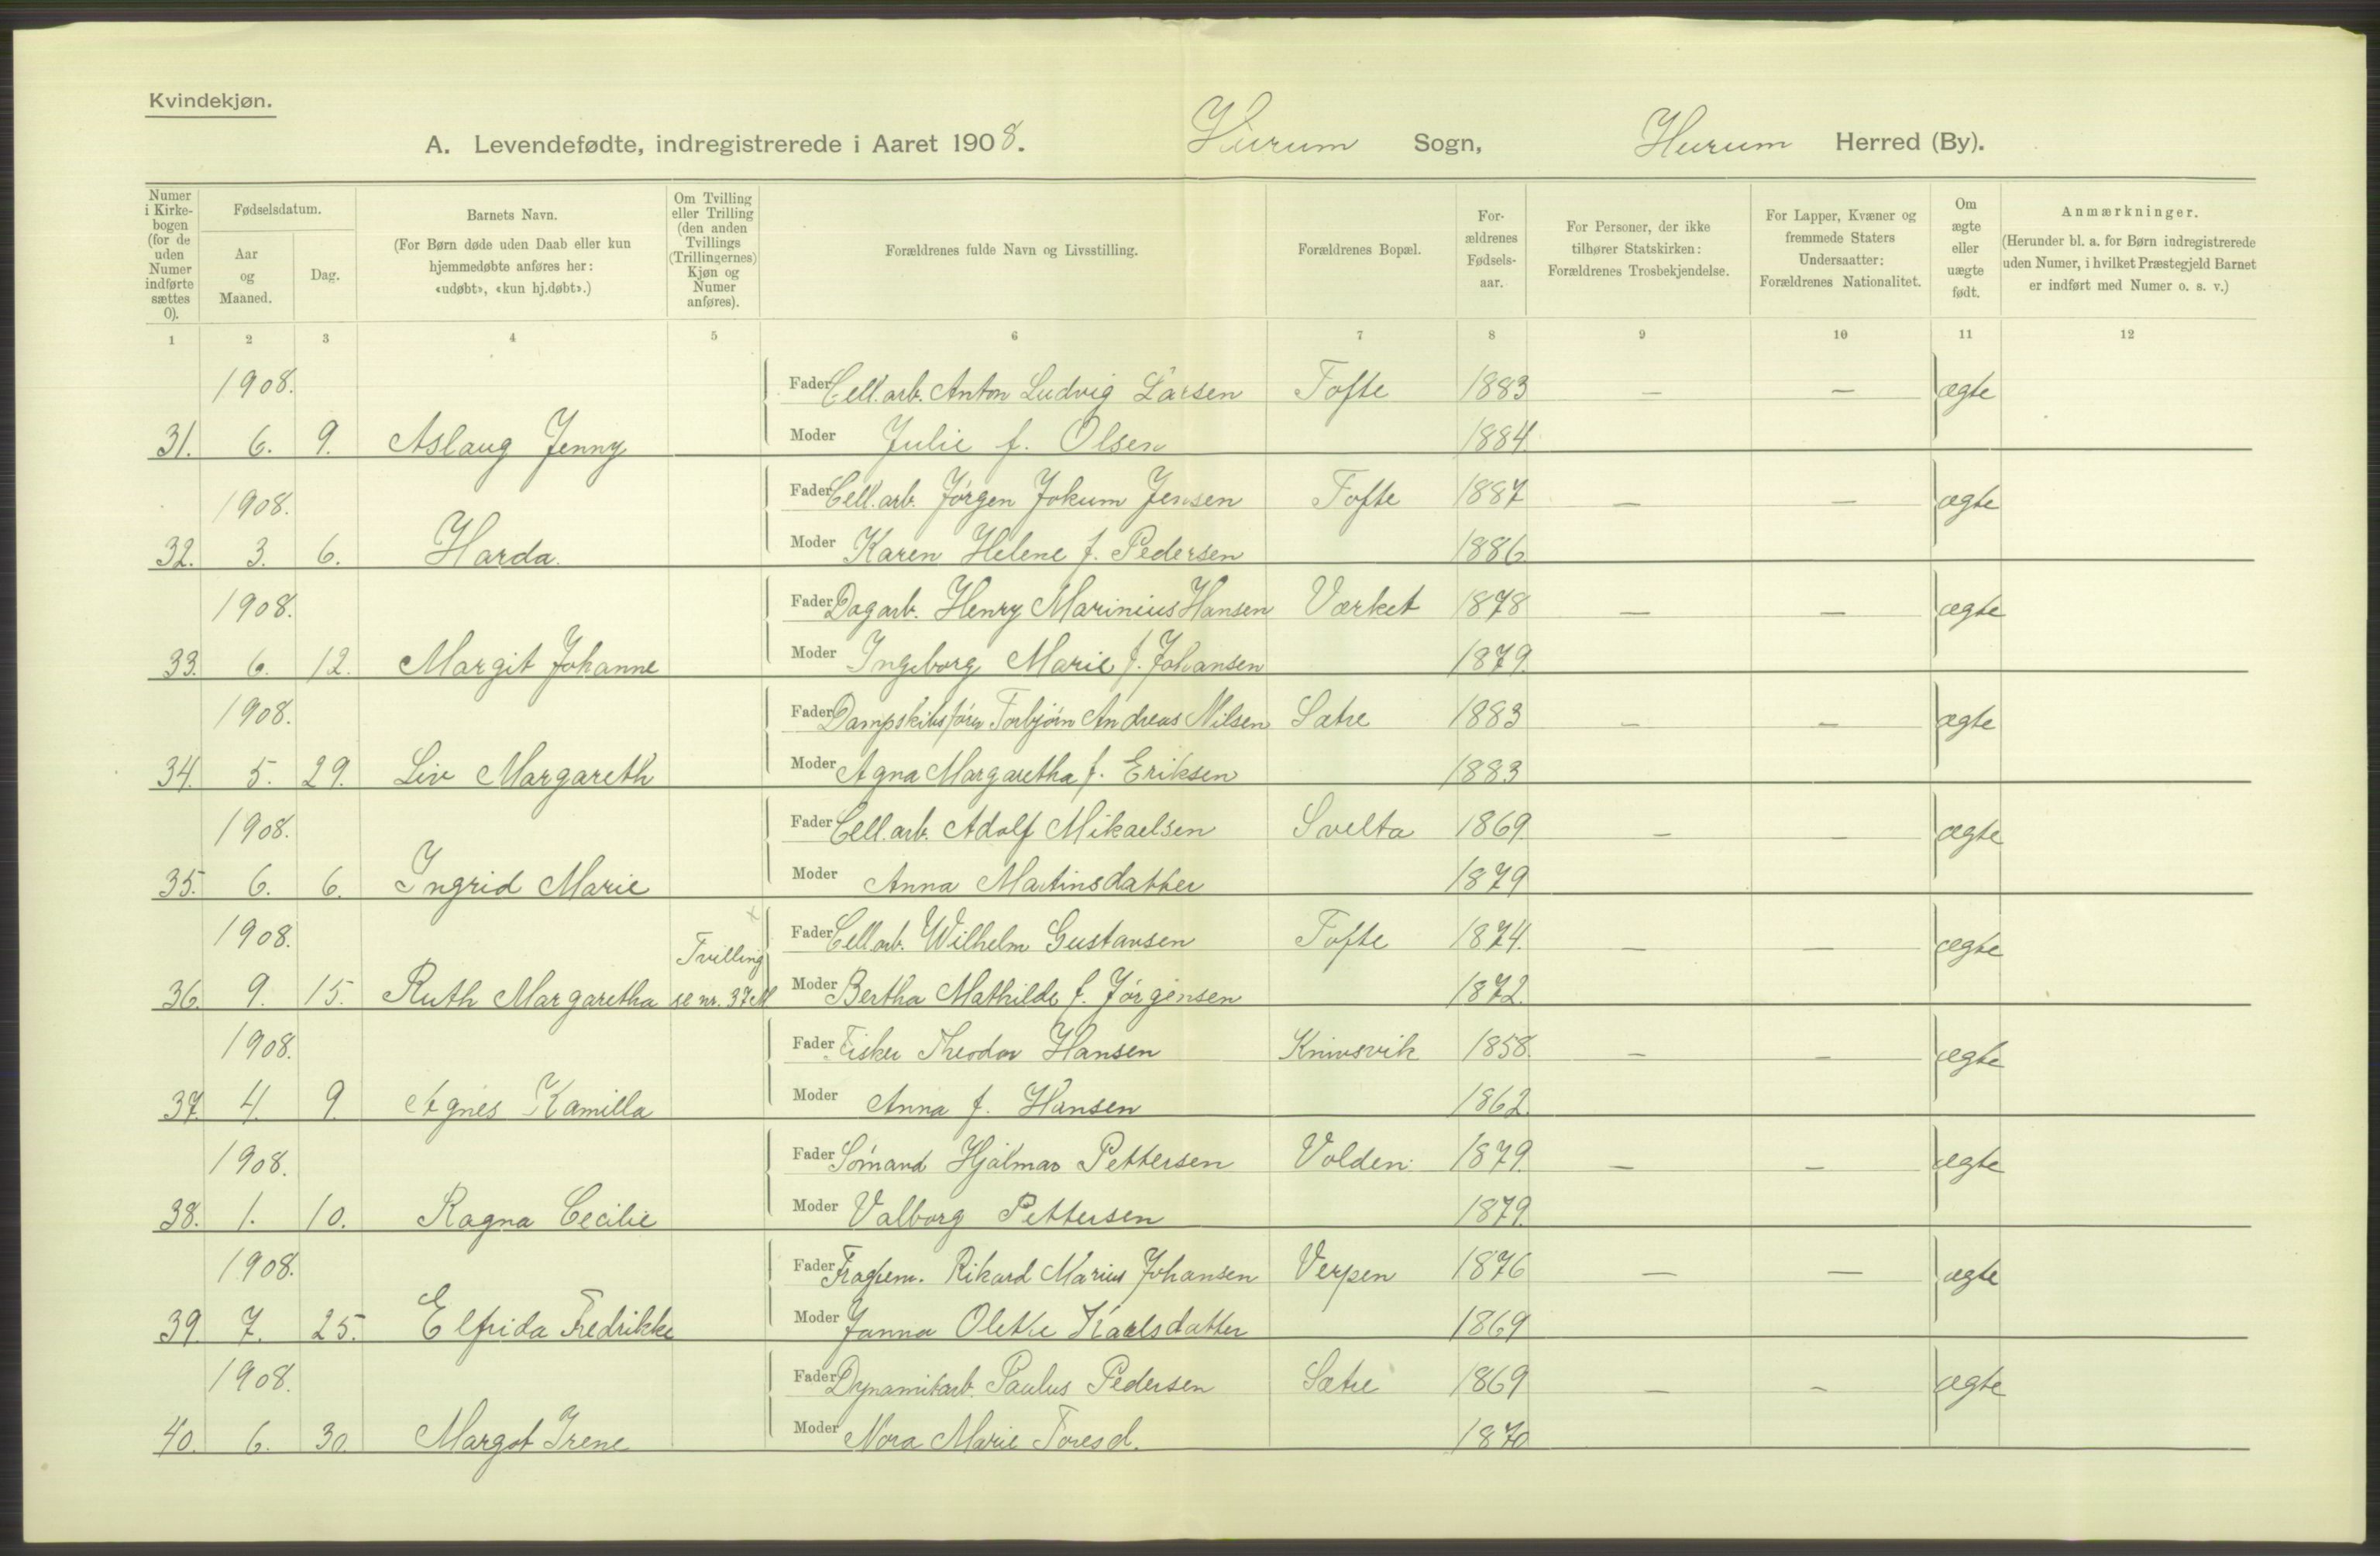 Kvindekjøn.
A. Levendefødte, indregistrerede i Aaret 1908. Hurum Sogn, Hurum Herred (By).
Numer i Kirkebogen (for de uden Numer indførte sættes 0).
Fødselsdatum.
Aar og Maaned.
Dag.
Barnets Navn.
(For Børn døde uden Daab eller kun hjemmedøbte anføres her: «udøbt», «kun hj.døbt».)
Om Tvilling eller Trilling (den anden Tvillings (Trillingernes) Kjøn og Numer anføres).
Forældrenes fulde Navn og Livsstilling.
Forældrenes Bopæl.
Forældrenes Fødselsaar.
For Personer, der ikke tilhører Statskirken: Forældrenes Trosbekjendelse.
For Lapper, Kvæner og fremmede Staters Undersaatter: Forældrenes Nationalitet.
Om ægte eller uægte født.
Anmærkninger.
(Herunder bl. a. for Børn indregistrerede uden Numer, i hvilket Præstegjeld Barnet er indført med Numer o. s. v.)
1 2 3 4 5 6 7 8 9 10 11 12
1908. Fader Cell.arb. Anton Ludvig Larsen Tofte 1883 — — ægte
31. 6. 9. Aslaug Jenny Moder Julie f. Olsen 1884.
1908. Fader Cell.arb. Jørgen Jokum Jensen Tofte 1887 — — ægte
32. 3. 6. Harda. Moder Karen Helene f. Pedersen 1886
1908. Fader Dagarb. Henry Marinius Hansen Værket 1878 — — ægte
33. 6. 12. Margit Johanne Moder Ingeborg Marie f. Johansen 1879.
1908. Fader Dampskibsfører Torbjørn Andreas Nilsen Sætre 1883 — — ægte
34. 5. 29. Liv Margareth Moder Agna Margaretha f. Eriksen 1883
1908. Fader Cell.arb. Adolf Mikaelsen Svelta 1869. — — ægte
35. 6. 6. Ingrid Marie Moder Anna Martinsdatter 1879
1908. Tvilling Fader Cellarb. Wilhelm Gustavsen Tofte 1874. — — ægte
36. 9. 15. Ruth Margaretha se nr. 37 M Moder Bertha Mathilde f. Jørgensen 1872.
1908. Fader Fisker Theodor Hansen Knivsvik 1858. — — ægte
37. 4. 9. Agnes Kamilla Moder Anna f. Hansen 1862.
1908. Fader Sømand Hjalmar Pettersen Volden 1879. — — ægte
38. 1. 10. Ragna Cecilie Moder Valborg Pettersen 1879.
1908. Fader Fragtem. Rikard Marius Johansen Verpen 1876 — — ægte
39. 7. 25. Elfrida Fredrikke Moder Janna Olette Karlsdatter 1869
1908. Fader Dynamitarb. Paulus Pedersen Sætre 1869 — — ægte
40. 6. 30. Margot Irene Moder Nora Marie Toresd. 1870